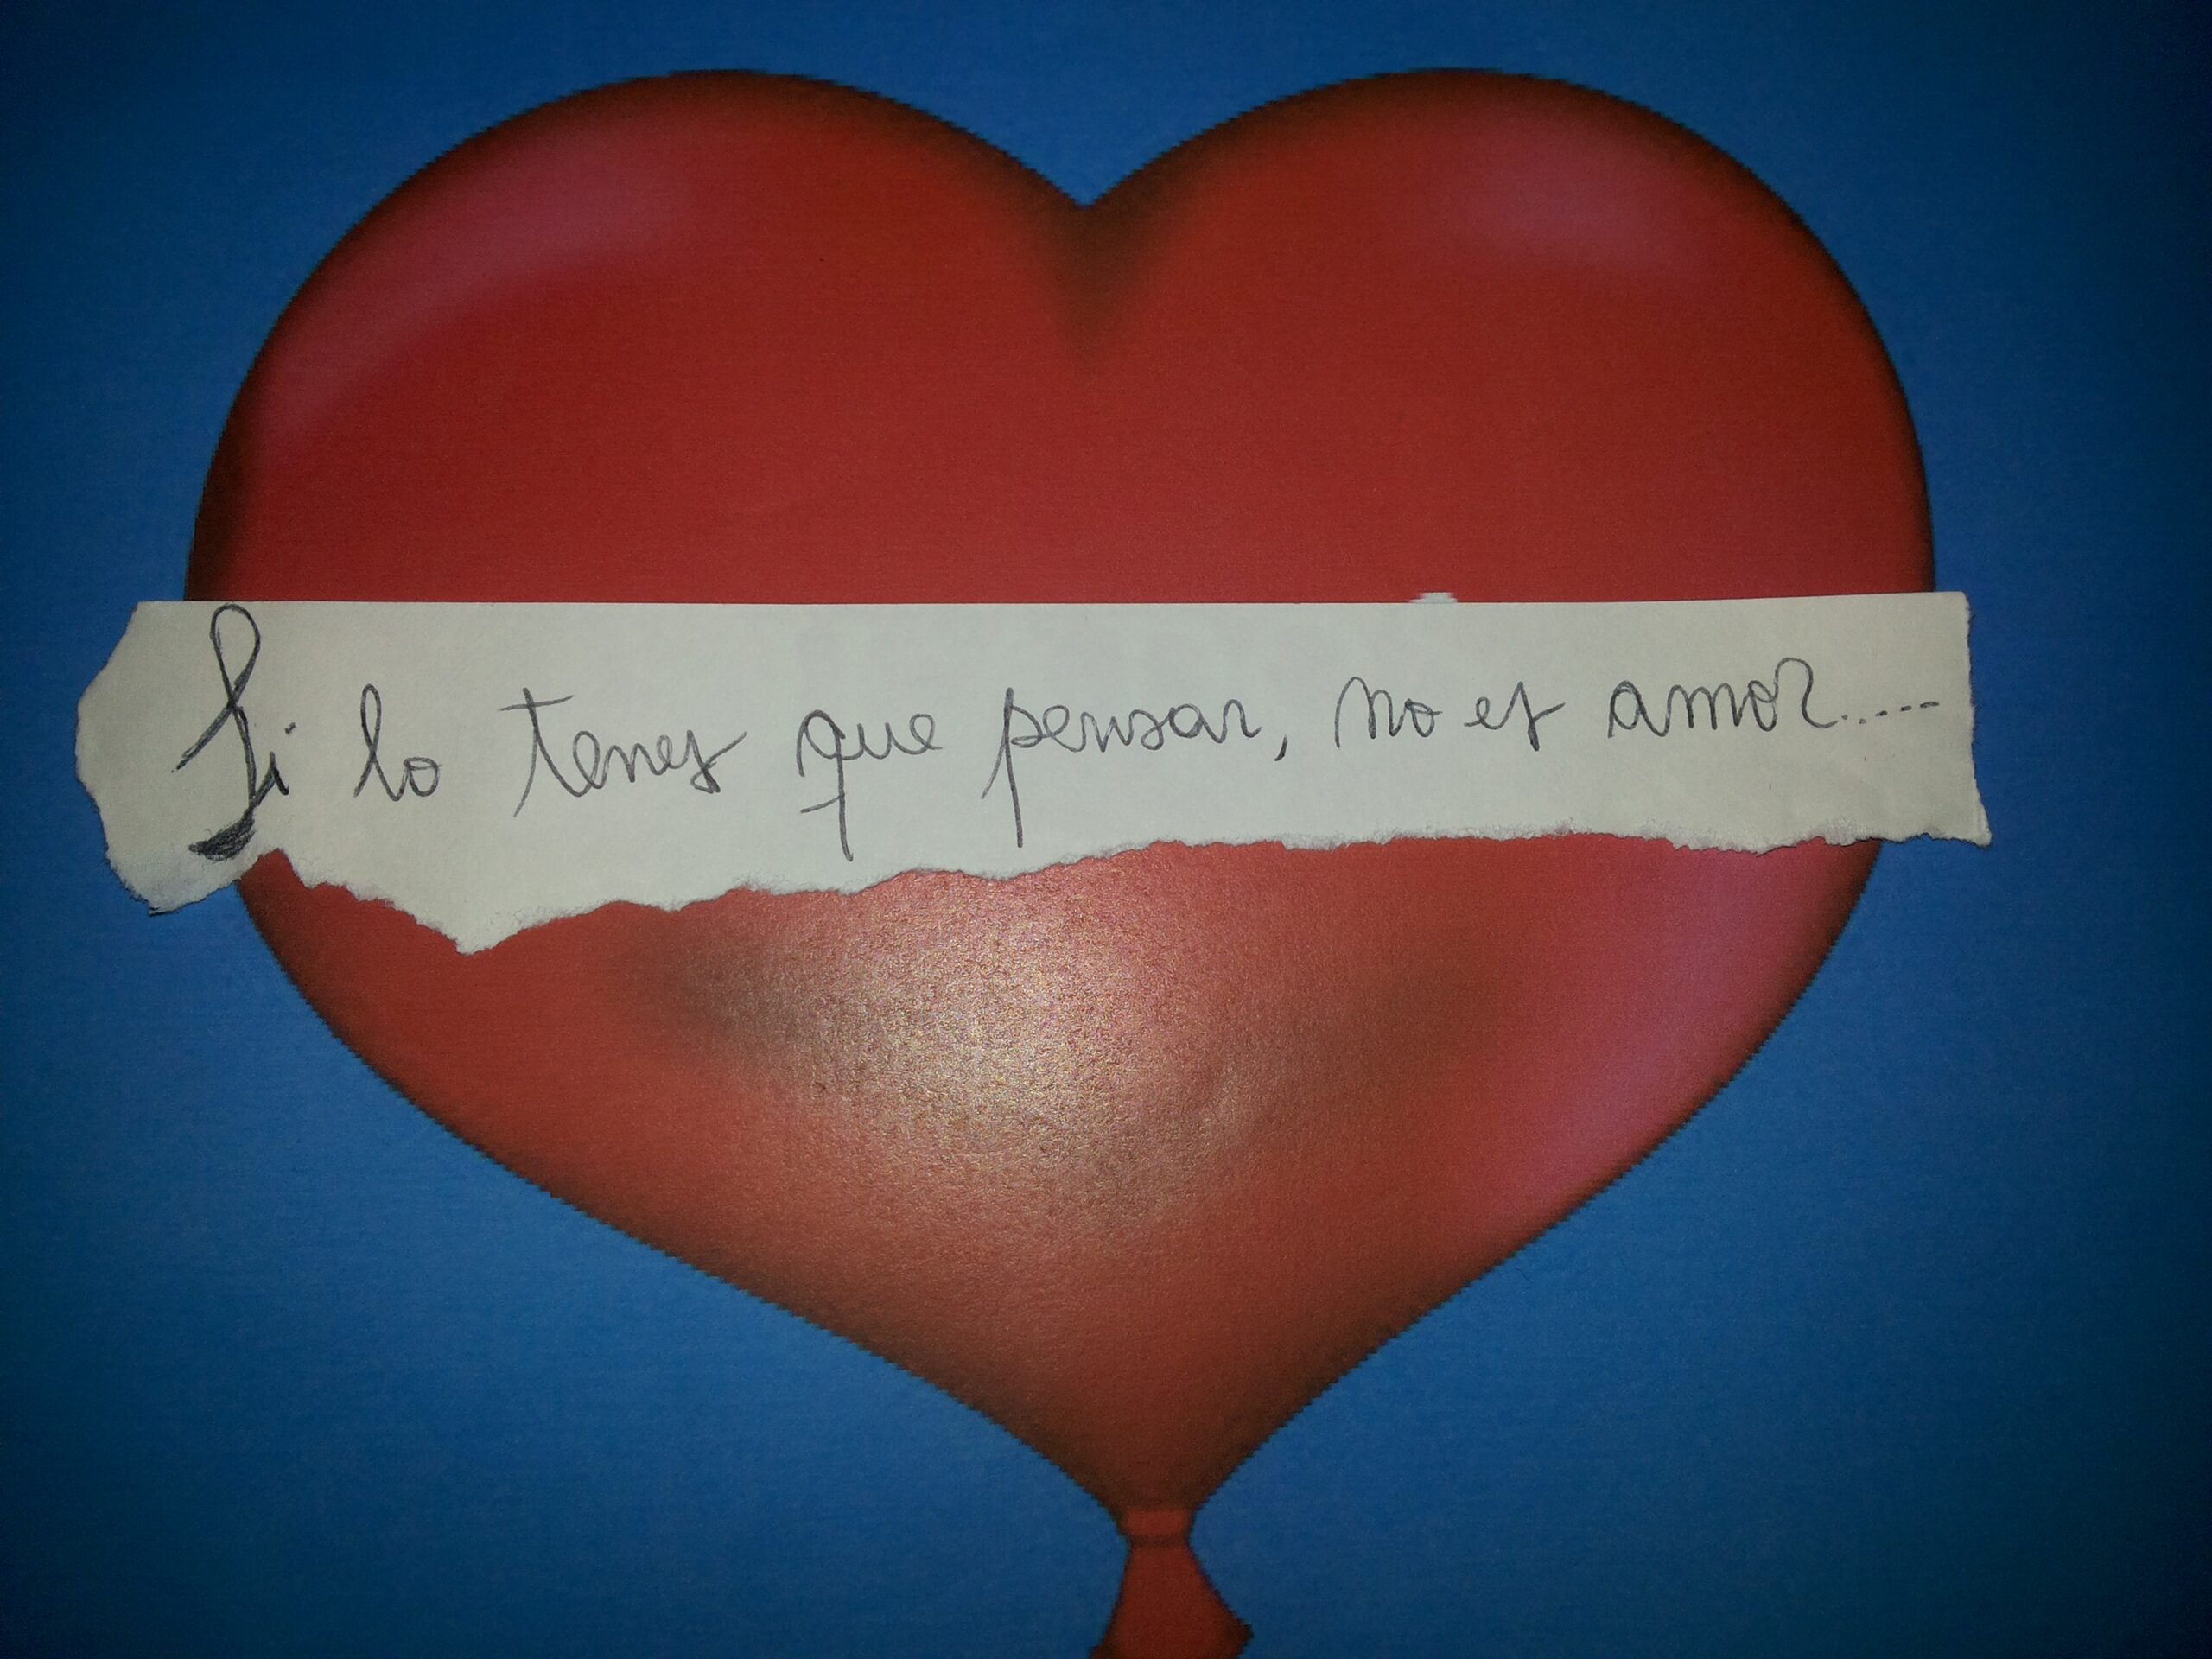 Si lo tenes que pensar, no es amor........